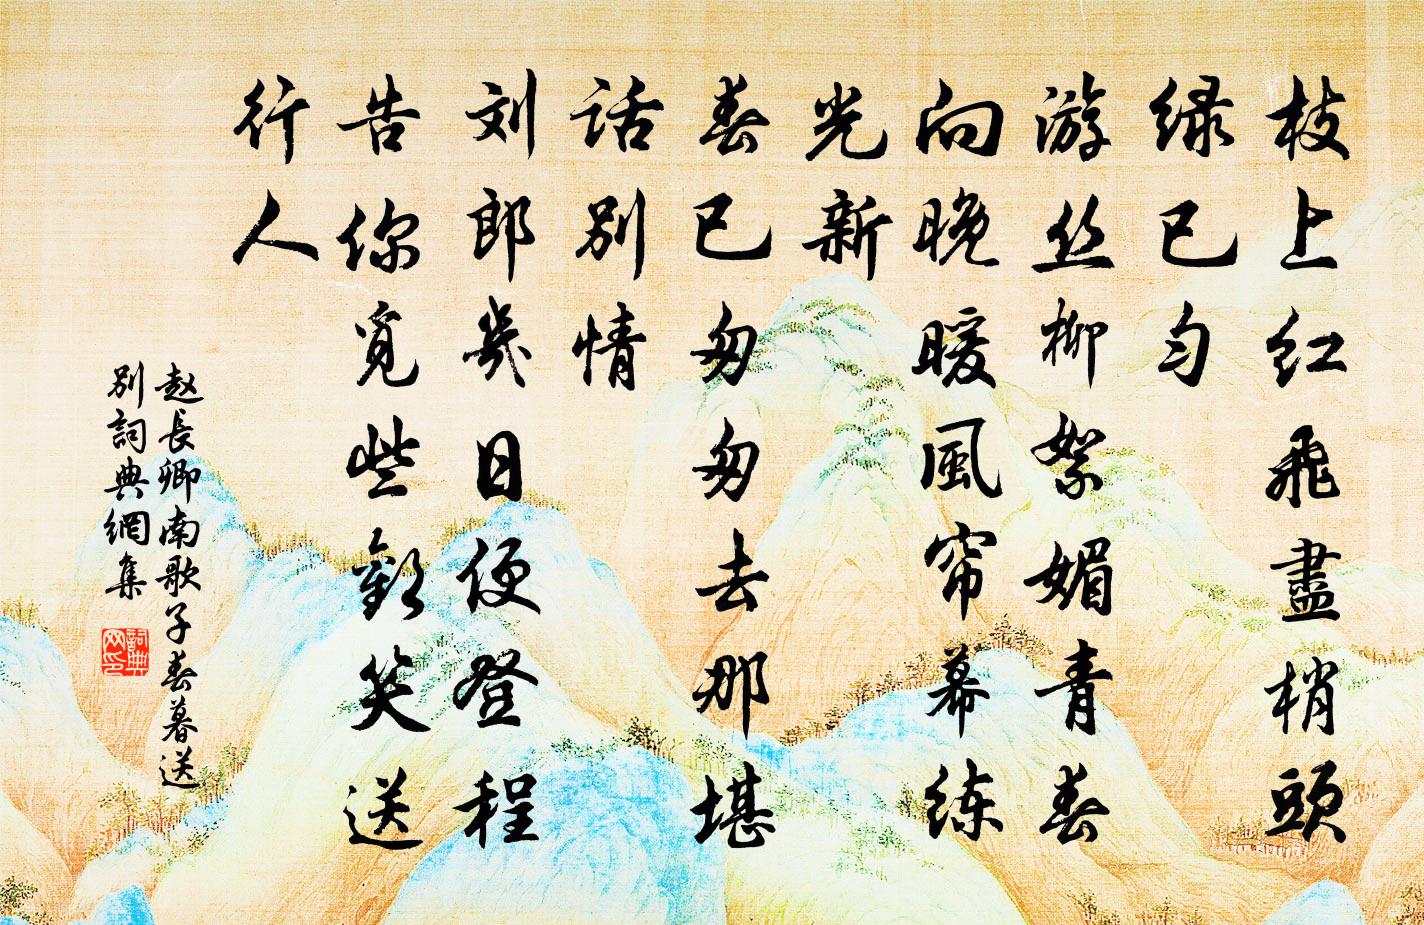 枝上红飛盡梢頭
绿已匀
游丝柳絮媚青春
向晚暖風帘幕练
光新
春已匆匆去那堪
话别情
刘郎幾日便登程
告你覓些歡笑送
行人
赵長卿南歌子春暮送
别詞典網集
詞典
网印